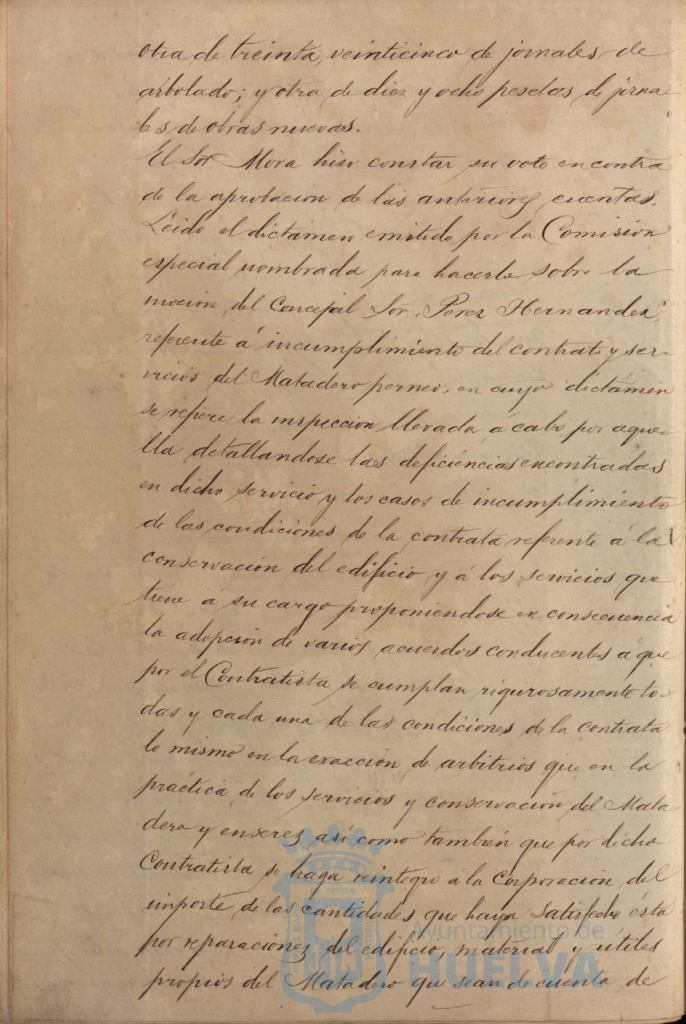 otra de treinta, veinticinco de jornales de
arbolado; y otra de diez y ocho pesetas de jorna
les de obras nuevas.
El Sor. Mora hizo constar su voto en contra
de la aprobacion de las anteriores cuentas.
Leido el dictámen emitido por la Comisión
especial nombrada para hacerlo sobre la
mocion del Concejal Sor. Perez Hernandez,
referente á incumplimiento del contrato y ser-
vicios del Matadero perneo, en cuyo dictámen
se refiere la inspeccion llevada á cabo por aque-
lla detallandose las deficiencias encontradas
en dicho servicio y los casos de incumplimiento
de las condiciones de la contrata referente á la
conservacion del edificio y á los servicios que
tiene á su cargo proponiendose en consecuencia
la adopcion de varios acuerdos conducentes á que
por el Contratista se cumplan rigurosamente to-
das y cada una de las condiciones de la contrata
lo mismo en la exaccion de arbitrios que en la
práctica de los servicios y conservación del Mata
dero y enseres así como también que por dicho
Contratista se haga reintegro á la Corporacion del
importe de las cantidades que haya satisfecho ésta
por reparaciones del edificio, material y útiles
propios del Matadero que sean de cuenta de
Ayuntamiento de
HUELVA